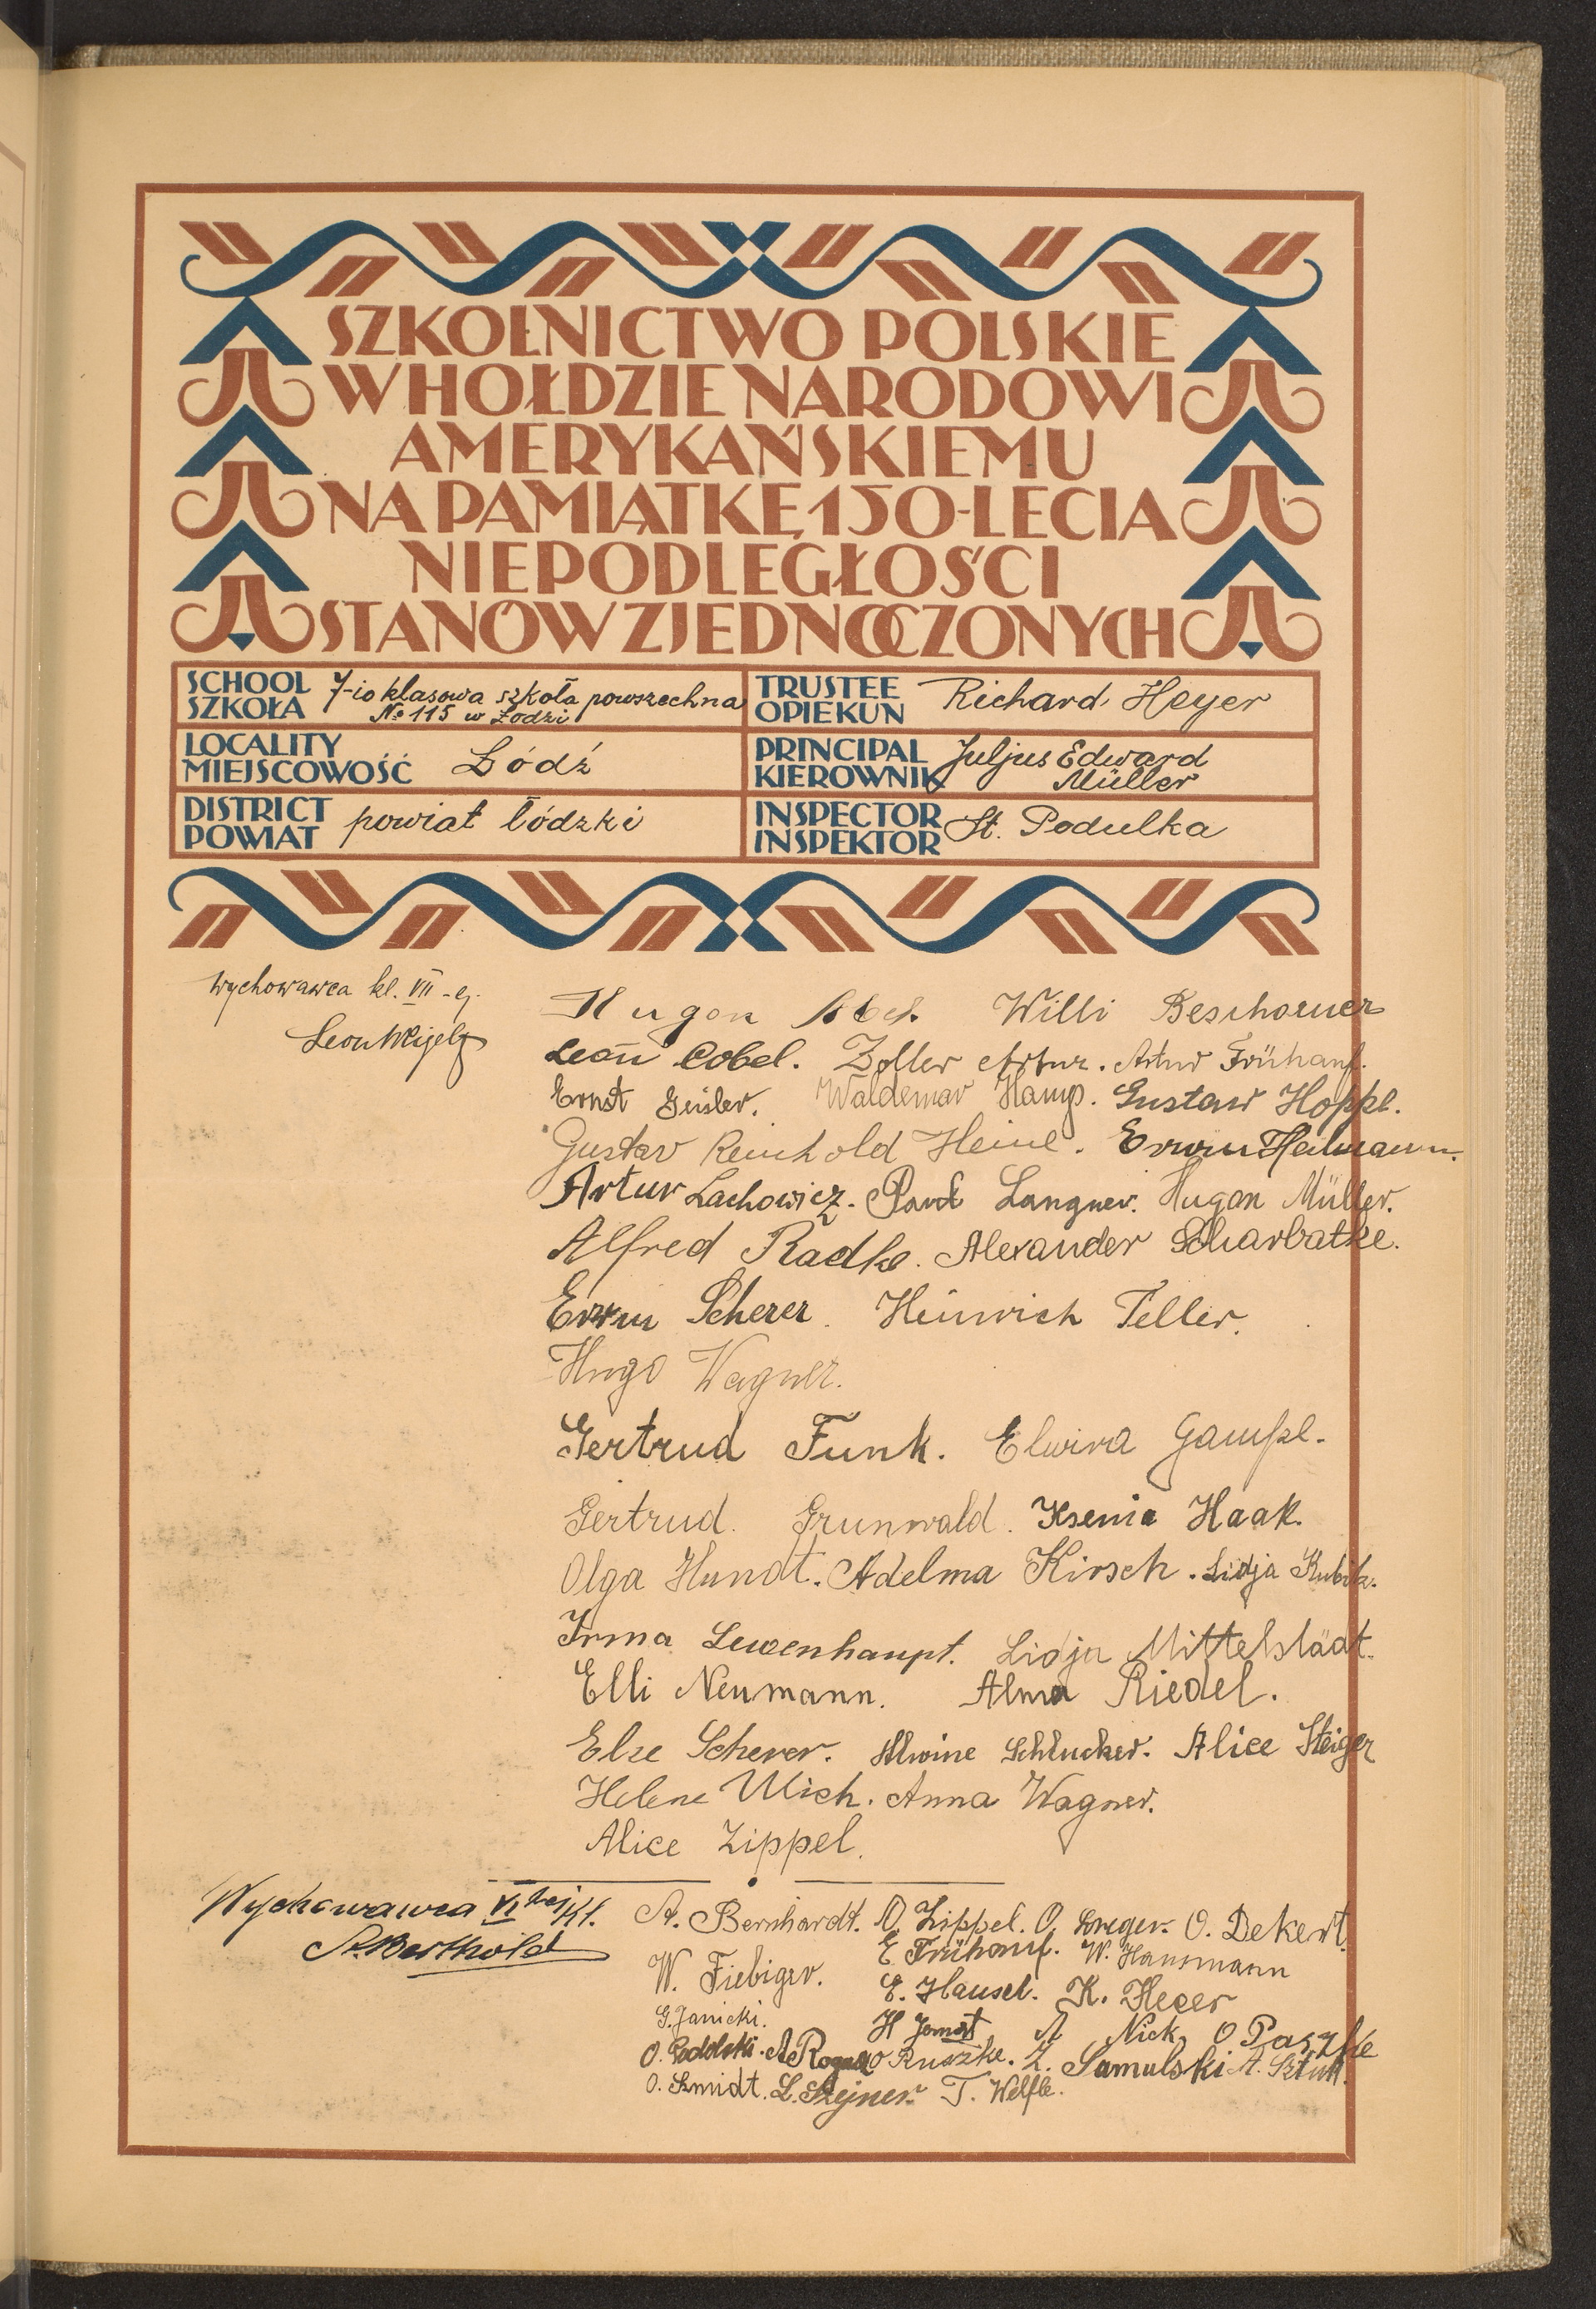 SZKOLNICTWO POLSKIE
W HOŁDZIE NARODOWI
AMERYKAŃSKIEMU
NA PAMIĄTKĘ 150-LECIA
NIEPODLEGŁOŚCI
STANÓW ZJEDNOCZONYCH
SCHOOL
SZKOŁA
7-io klasowa szkoła powszechna
№ 115 w Łodzi
TRUSTEE
OPIEKUN
Richard Heyer
LOCALITY
MIEJSCOWOŚĆ
Łódź
PRINCIPAL
KIEROWNIK
Juljus Edward
Müller
DISTRICT
POWIAT
powiat łódzki
INSPECTOR
INSPEKTOR
St. Podulka
Wychowawca kl. VII-ej.
Leon Weigelt
Hugon Willi Beschorner
Leon Cobel. Zoller Artur. Artur Frühauf.
Ernst Geisler. Waldemar Hamp. Gustaw Hoppe.
Gustav Reinhold Heine. Erwin Heilmann.
Artur Lachowicz. Paul Langner. Hugon Müller.
Alfred Radke. Alexander Scharbatke.
Erwin Scherer. Heinrich Teller.
Hugo Wagner.
Gertrud Funk. Elwira Gampe.
Gertrud. Grunwald. Ksenia Haak.
Olga Hundt. Adelma Kirsch. Lidja Kubik.
Irma Lewenhaupt. Lidja Mittelstädt.
Elli Neumann. Alma Riedel.
Else Scherer. Alwine Schlucker. Alice Steiger
Helene Ulich. Anna Wagner.
Alice Zippel.
Wychowawca VI tej kl.
A. Berthold
A. Bernhardt. O. Zippel. O. O. Dekert.
E. Frühauf. W. Hansmann
W. Fiebiger. E. Hausel. K. Heger
G. Janicki. H A Nick O Paszke
O. Podolski. A Rogall O Ruszke. Z. Samulski A. Sztuk.
O. Szmidt. L. Szejner. T. Welfle.